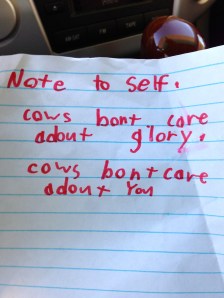 Note to self.
cows bont care
adout glory.
cows bont care
adout You